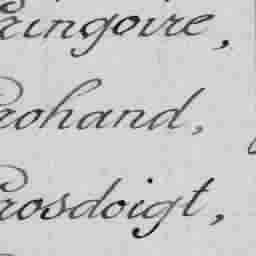 Gringoire,
Grohand,
Grosdoigt,